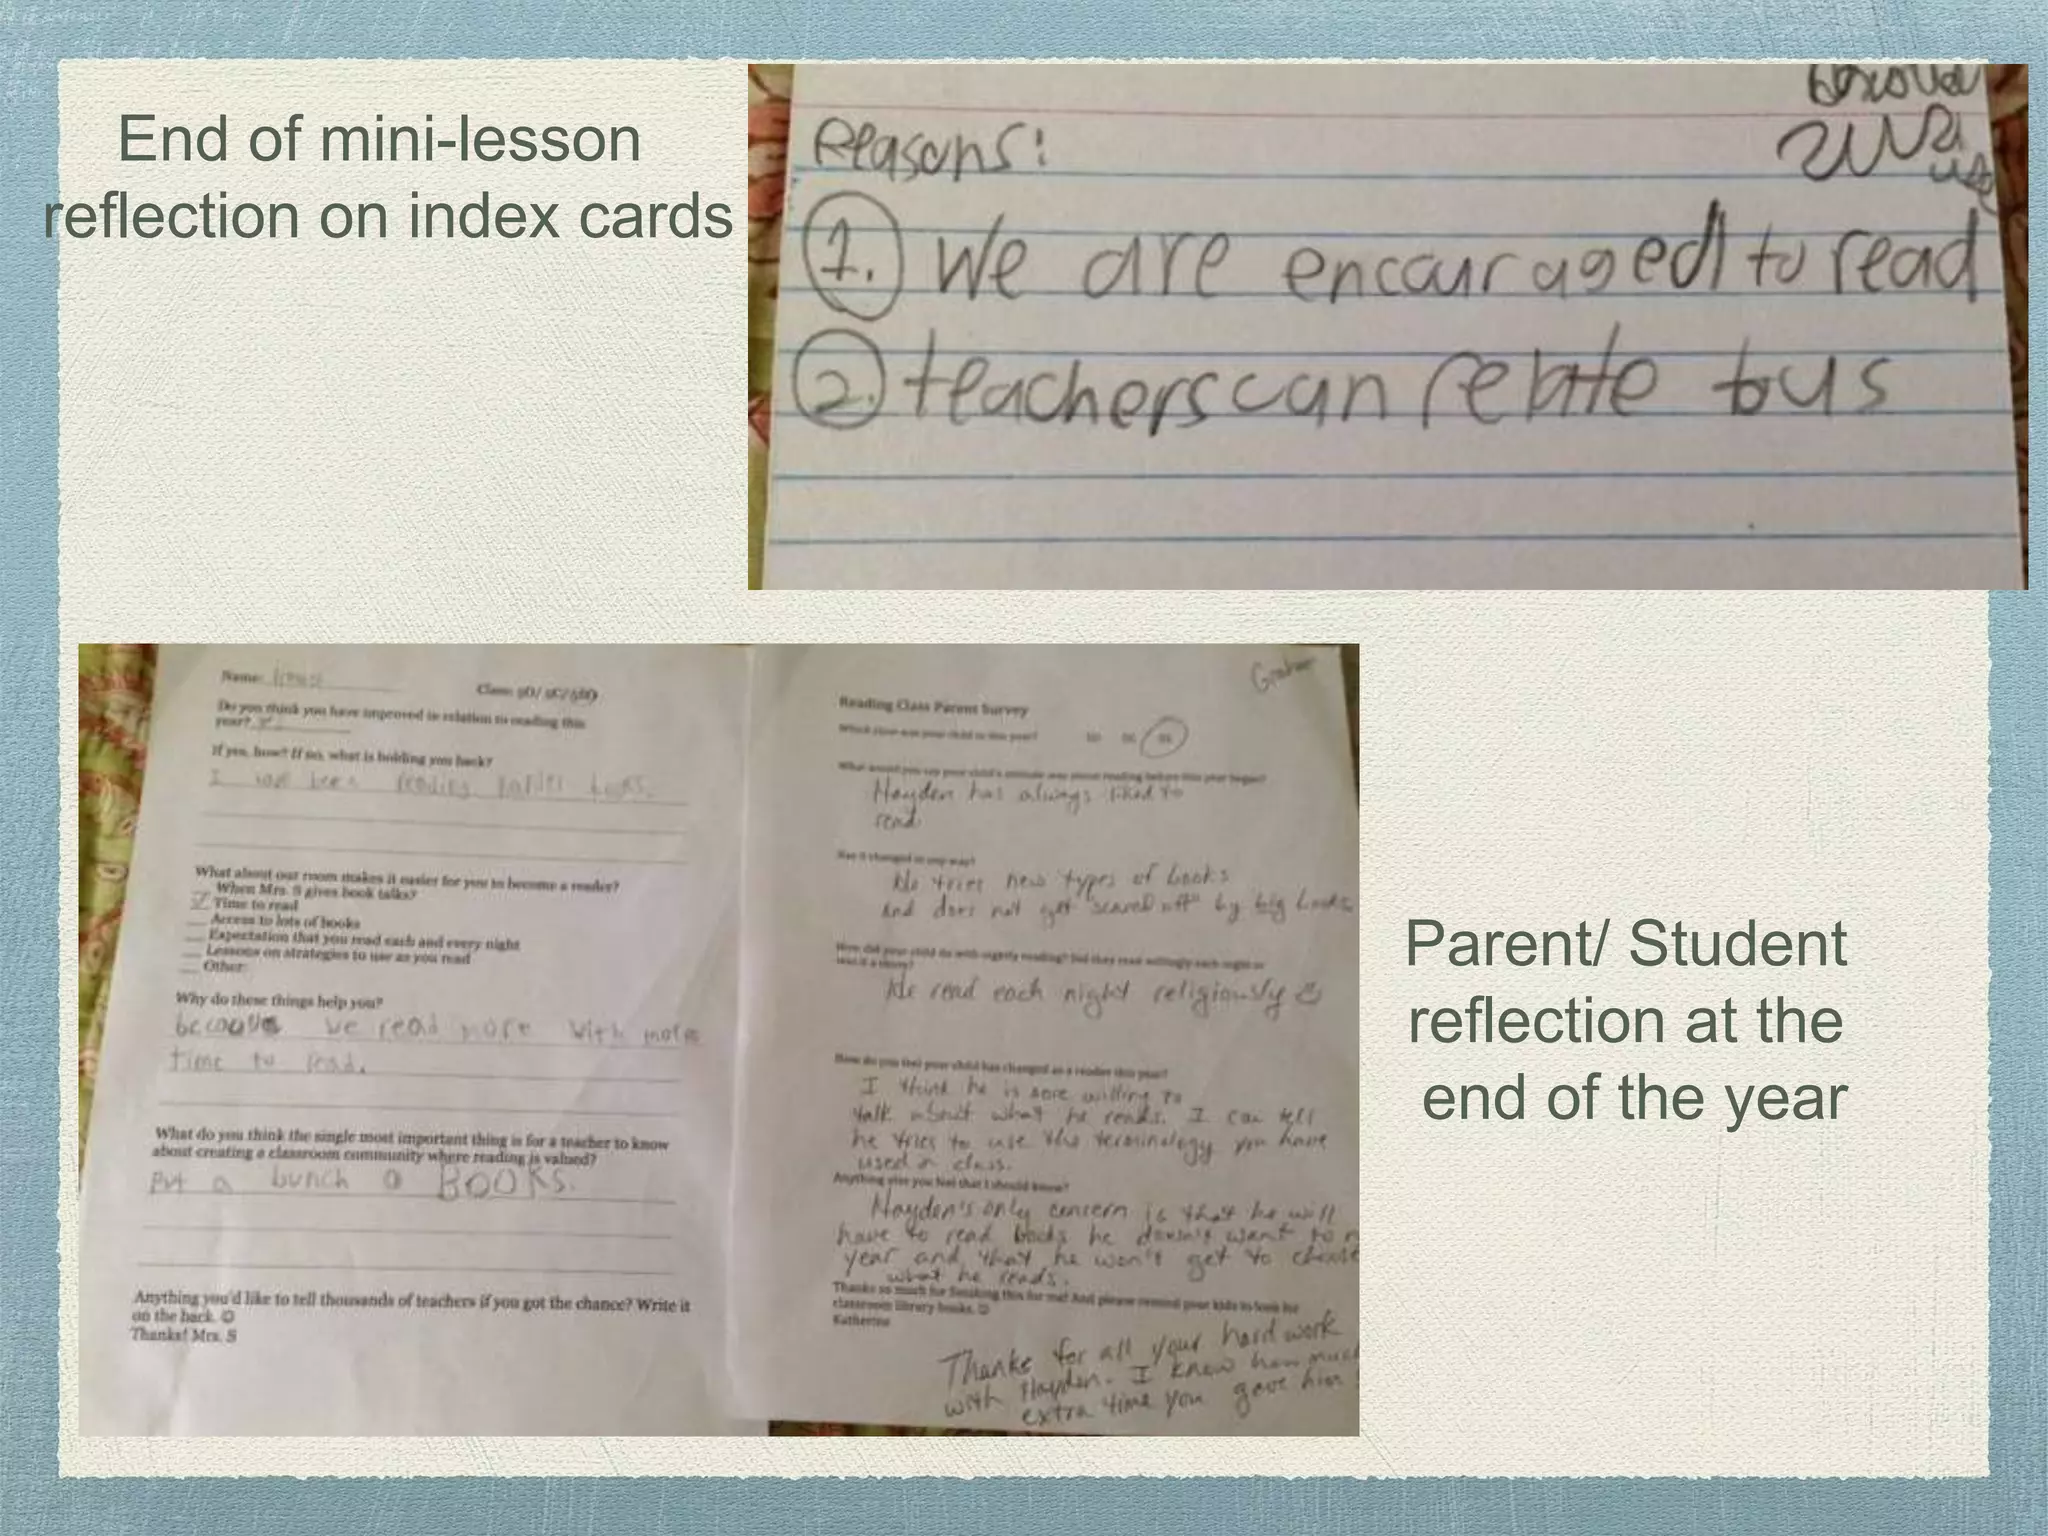 End of mini-lesson
reflection on index cards
Reasons:
1. We are encouraged to read
2. teachers can relate to us
Name:
Class: 5D/ 5C/
Do you think you have improved in relation to reading this
year?
If yes, how? If no, what is holding you back?
I have been reading books.
What about our room makes it easier for you to become a reader?
When Mrs. S gives book talks?
Time to read
Access to lots of books
Expectation that you read each and every night
Lessons on strategies to use as you read
Other:
Why do these things help you?
because we read more with more
time to read.
What do you think the single most important thing is for a teacher to know
about creating a classroom community where reading is valued?
Put a bunch o BOOKS.
Anything you'd like to tell thousands of teachers if you got the chance? Write it
on the back. ☺
Thanks! Mrs. S
Reading Class Parent Survey
Which class was your child in this year?
What would you say your child's attitude was about reading before this year began?
Hayden has always liked to
read
Has it changed in any way?
He tries new types of books
And does not get "scared off" by big books
How did your child do with nightly reading? Did they read willingly each night or
was it a
He read each night religiously ☺
How do you feel your child has changed as a reader this year?
I think he is more willing to
talk about what he reads. I can tell
he tries to use the terminology you have
used in class.
Anything else you feel that I should know?
Hayden's only concern is that he will
have to read books he doesn't want to n
year and that he won't get to choose
what he reads.
Thanks so much for finishing this for me! And please remind your kids to look for
classroom library books. ☺
Katherine
Thanks for all your hard work
with Hayden. I know how much
extra time you gave him
Parent/ Student
reflection at the
end of the year